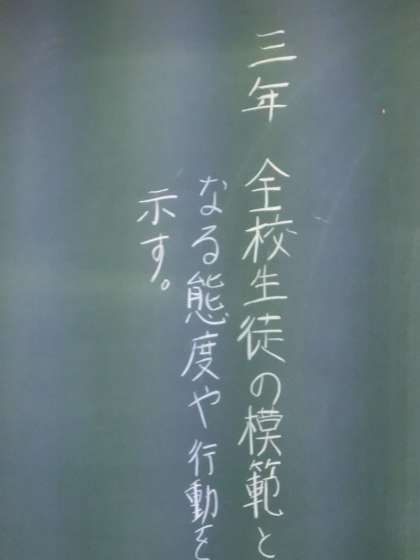 三年 全校生徒の模範と
なる態度や行動を
示す。